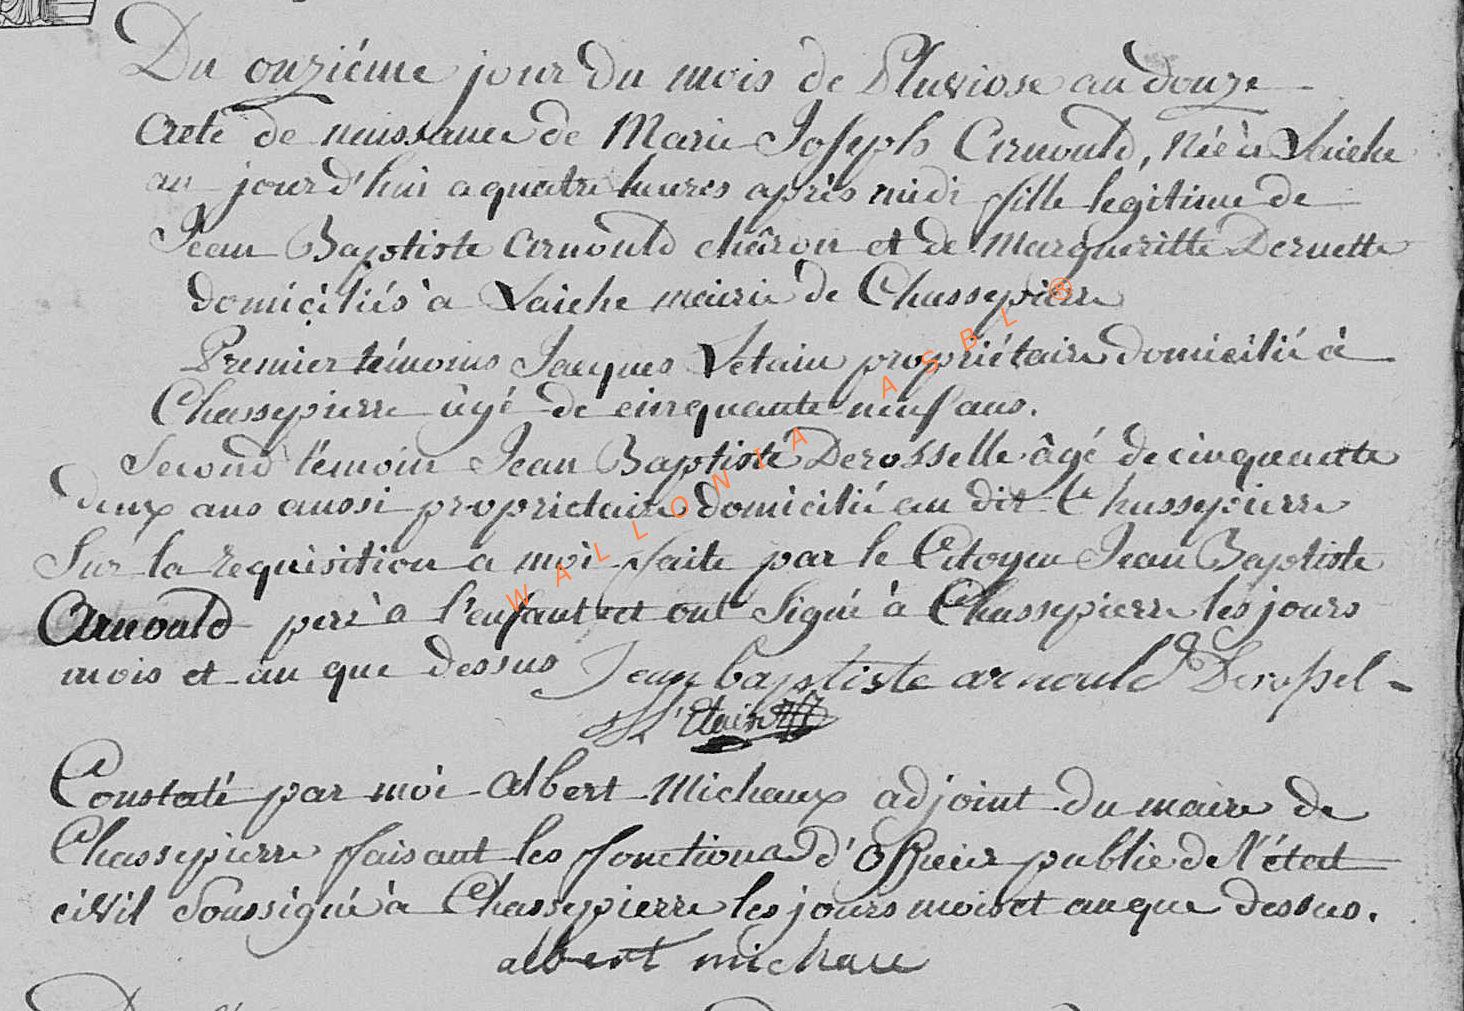 Du onziéme jour Du mois de Pluviose an douze
acte de naissance de Marie Joseph Arnould, Née à Laiche
au jourd'hui a quatre heures après midi fille legitime de
Jean Baptiste Arnould chãron et de Margueritte Dernette
domiciliés à Laiche mairie de Chassepierre
Premier témoins Jacques Letain propriétaire domicilié à
Chassepierre âgé de cinquante neuf ans.
Second témoin Jean Baptiste Derosselle âgé de cinquante
deux ans aussi propriétaire domicilié au dit Chassepierre
Sur la requisition a moi faite par le Citoyen Jean Baptiste
Arnould pere à l'enfant et ont Signé à Chassepierre les jours
mois et an que dessus Jean baptiste arnould Derossel
Constaté par moi albert Michaux adjoint du maire de
Chassepierre faisant les fonctions d'Officier public de l'état
civil Soussigné à Chassepierre les jours mois et an que dessus.
albert michau
WALLONIA ASBL ®